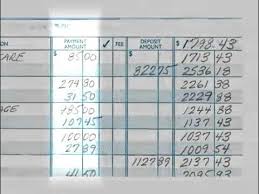 ION PAYMENT AMOUNT ✓ FEE DEPOSIT AMOUNT $ 1798 43
CARE 85 00 1713 43
822 75 2536 18
274 80 2261 38
31 50 2229 88
AGE 1244 88
107 45 1137 43
100 00 1037 43
27 89 1009 54
1127 89 2137 43